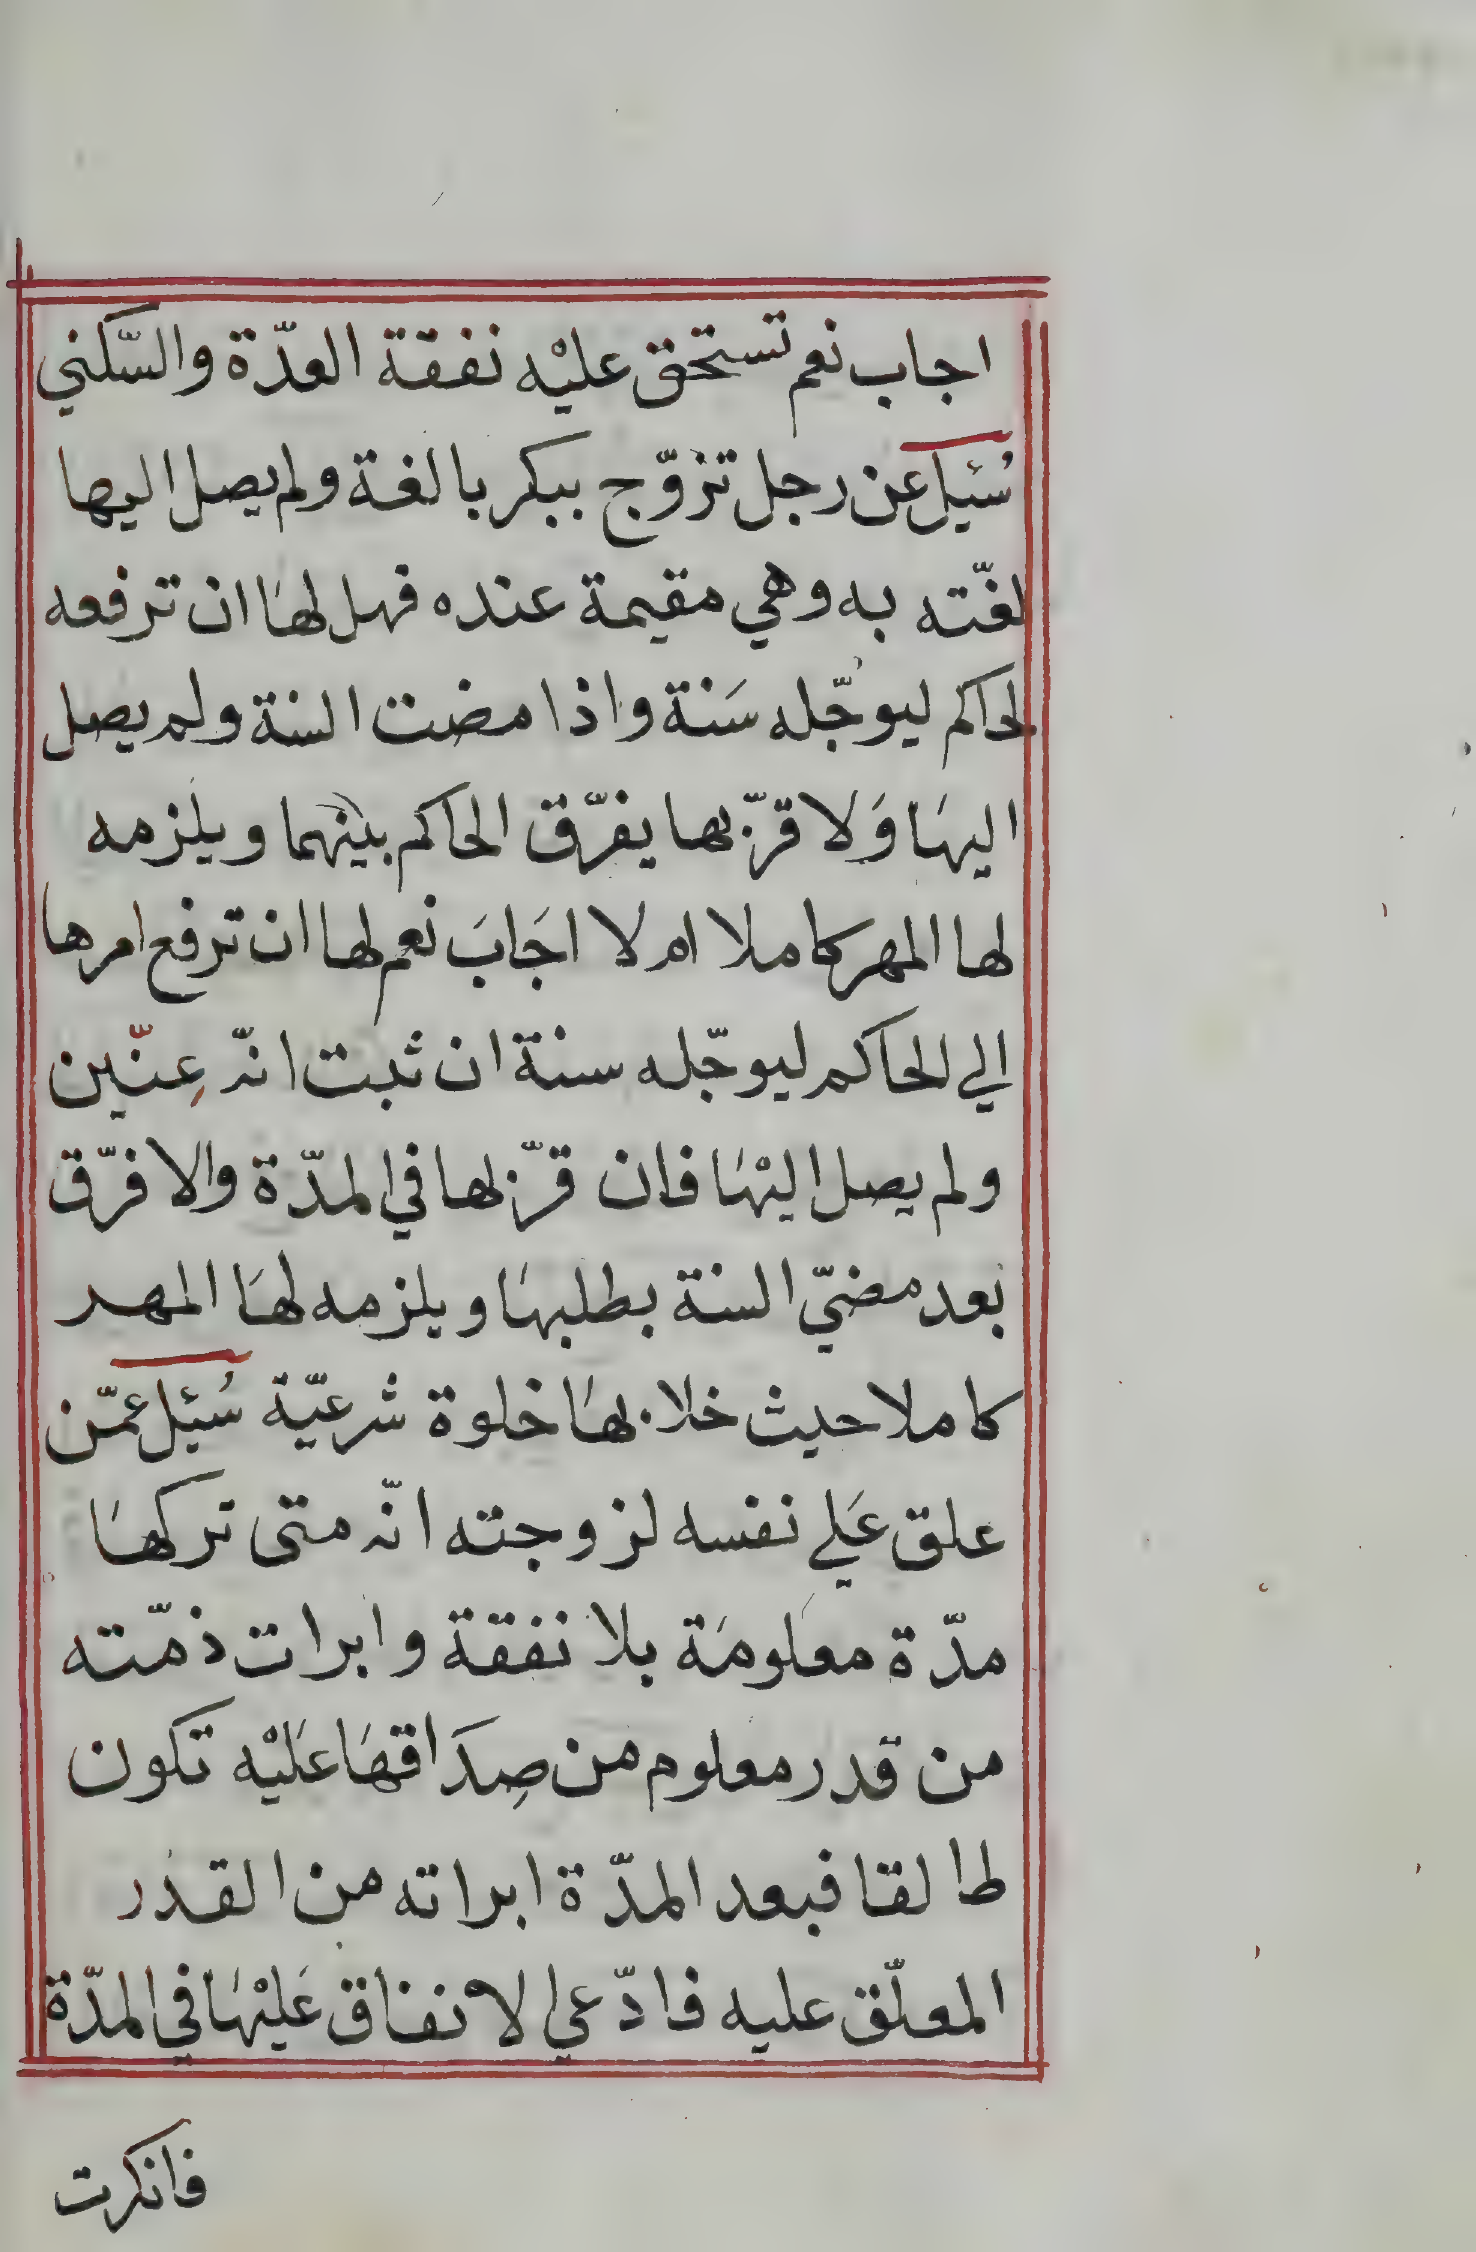 اجاب نعم تستحق عليْه نفقة العدّة والسّكني
سُئيل عن رجل تزوّج ببكر بالغة ولم يصل اليها
لغّته به وهي مقيمة عنده فهل لهَا ان ترفعه
لحاكم ليوجّله سَنة واذا مضت السنة ولم يصل
اليهَا وَلا قرّبها يفرّق الحاكم بينهما ويلزمه
لها المهر كاملا ام لا اجَابَ نعم لها ان ترفع امرها
الي الحاكم ليوجّله سنة ان ثبت انّه عِنّين
ولم يصل اليْهَا فان قرّبها في المدّة والا فرّق
بعد مضيّ السنة بطلبهَا ويلزمه لهَا المهر
كاملا حيث خلا بهَا خلوة شرعيّة سُئيل عمّن
علق عَلي نفسه لزوجته انّه متى تركهَا
مدّة معلومَة بلا نفقة وابرات ذمّته
من قدر معلوم من صِدَاقهَا عَليْه تكون
طالقا فبعد المدّة ابراته من القدر
المعلّق عليه فادّعي الانفاق عَليْهَا في المدّة
فانكرت